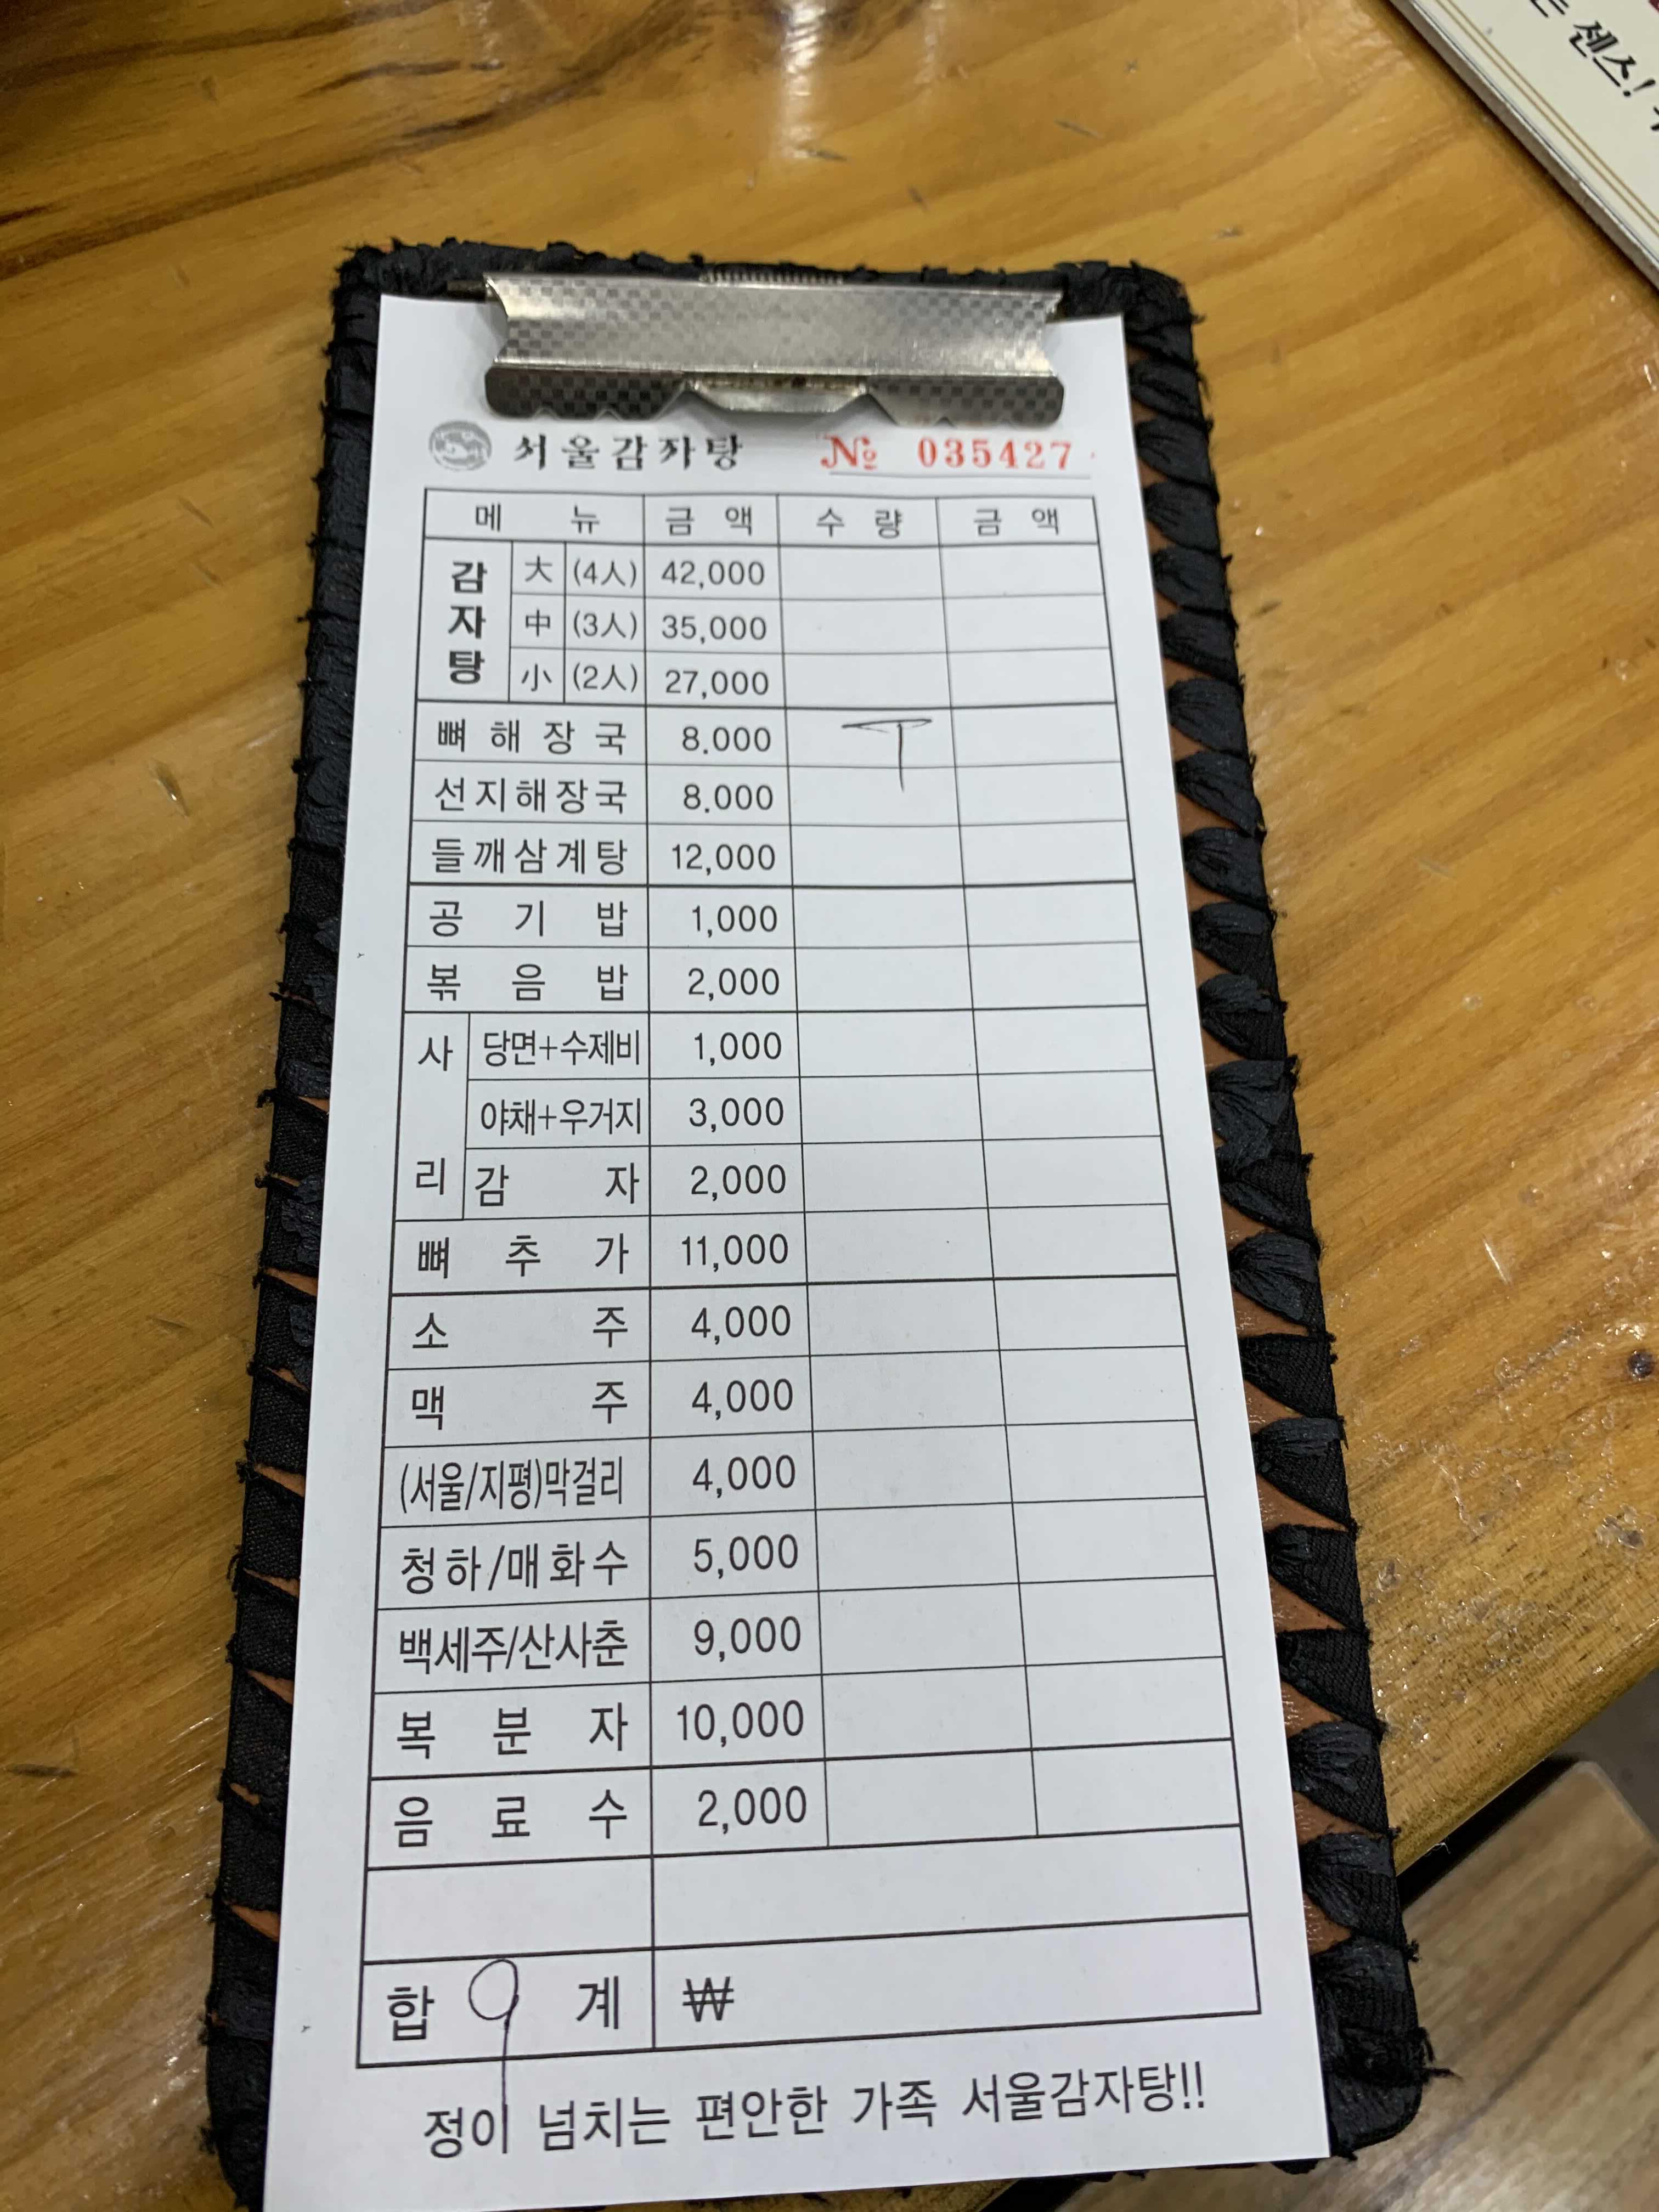 는 센스!
서울감자탕 № 035427
메뉴 금액 수량 금액
감자탕 大 (4人) 42,000
中 (3人) 35,000
小 (2人) 27,000
뼈해장국 8.000 T
선지해장국 8.000
들깨삼계탕 12,000
공기밥 1,000
볶음밥 2,000
사리 당면+수제비 1,000
야채+우거지 3,000
감자 2,000
뼈추가 11,000
소주 4,000
맥주 4,000
(서울/지평)막걸리 4,000
청하/매화수 5,000
백세주/산사춘 9,000
복분자 10,000
음료수 2,000
합계 ₩
9
정이 넘치는 편안한 가족 서울감자탕!!